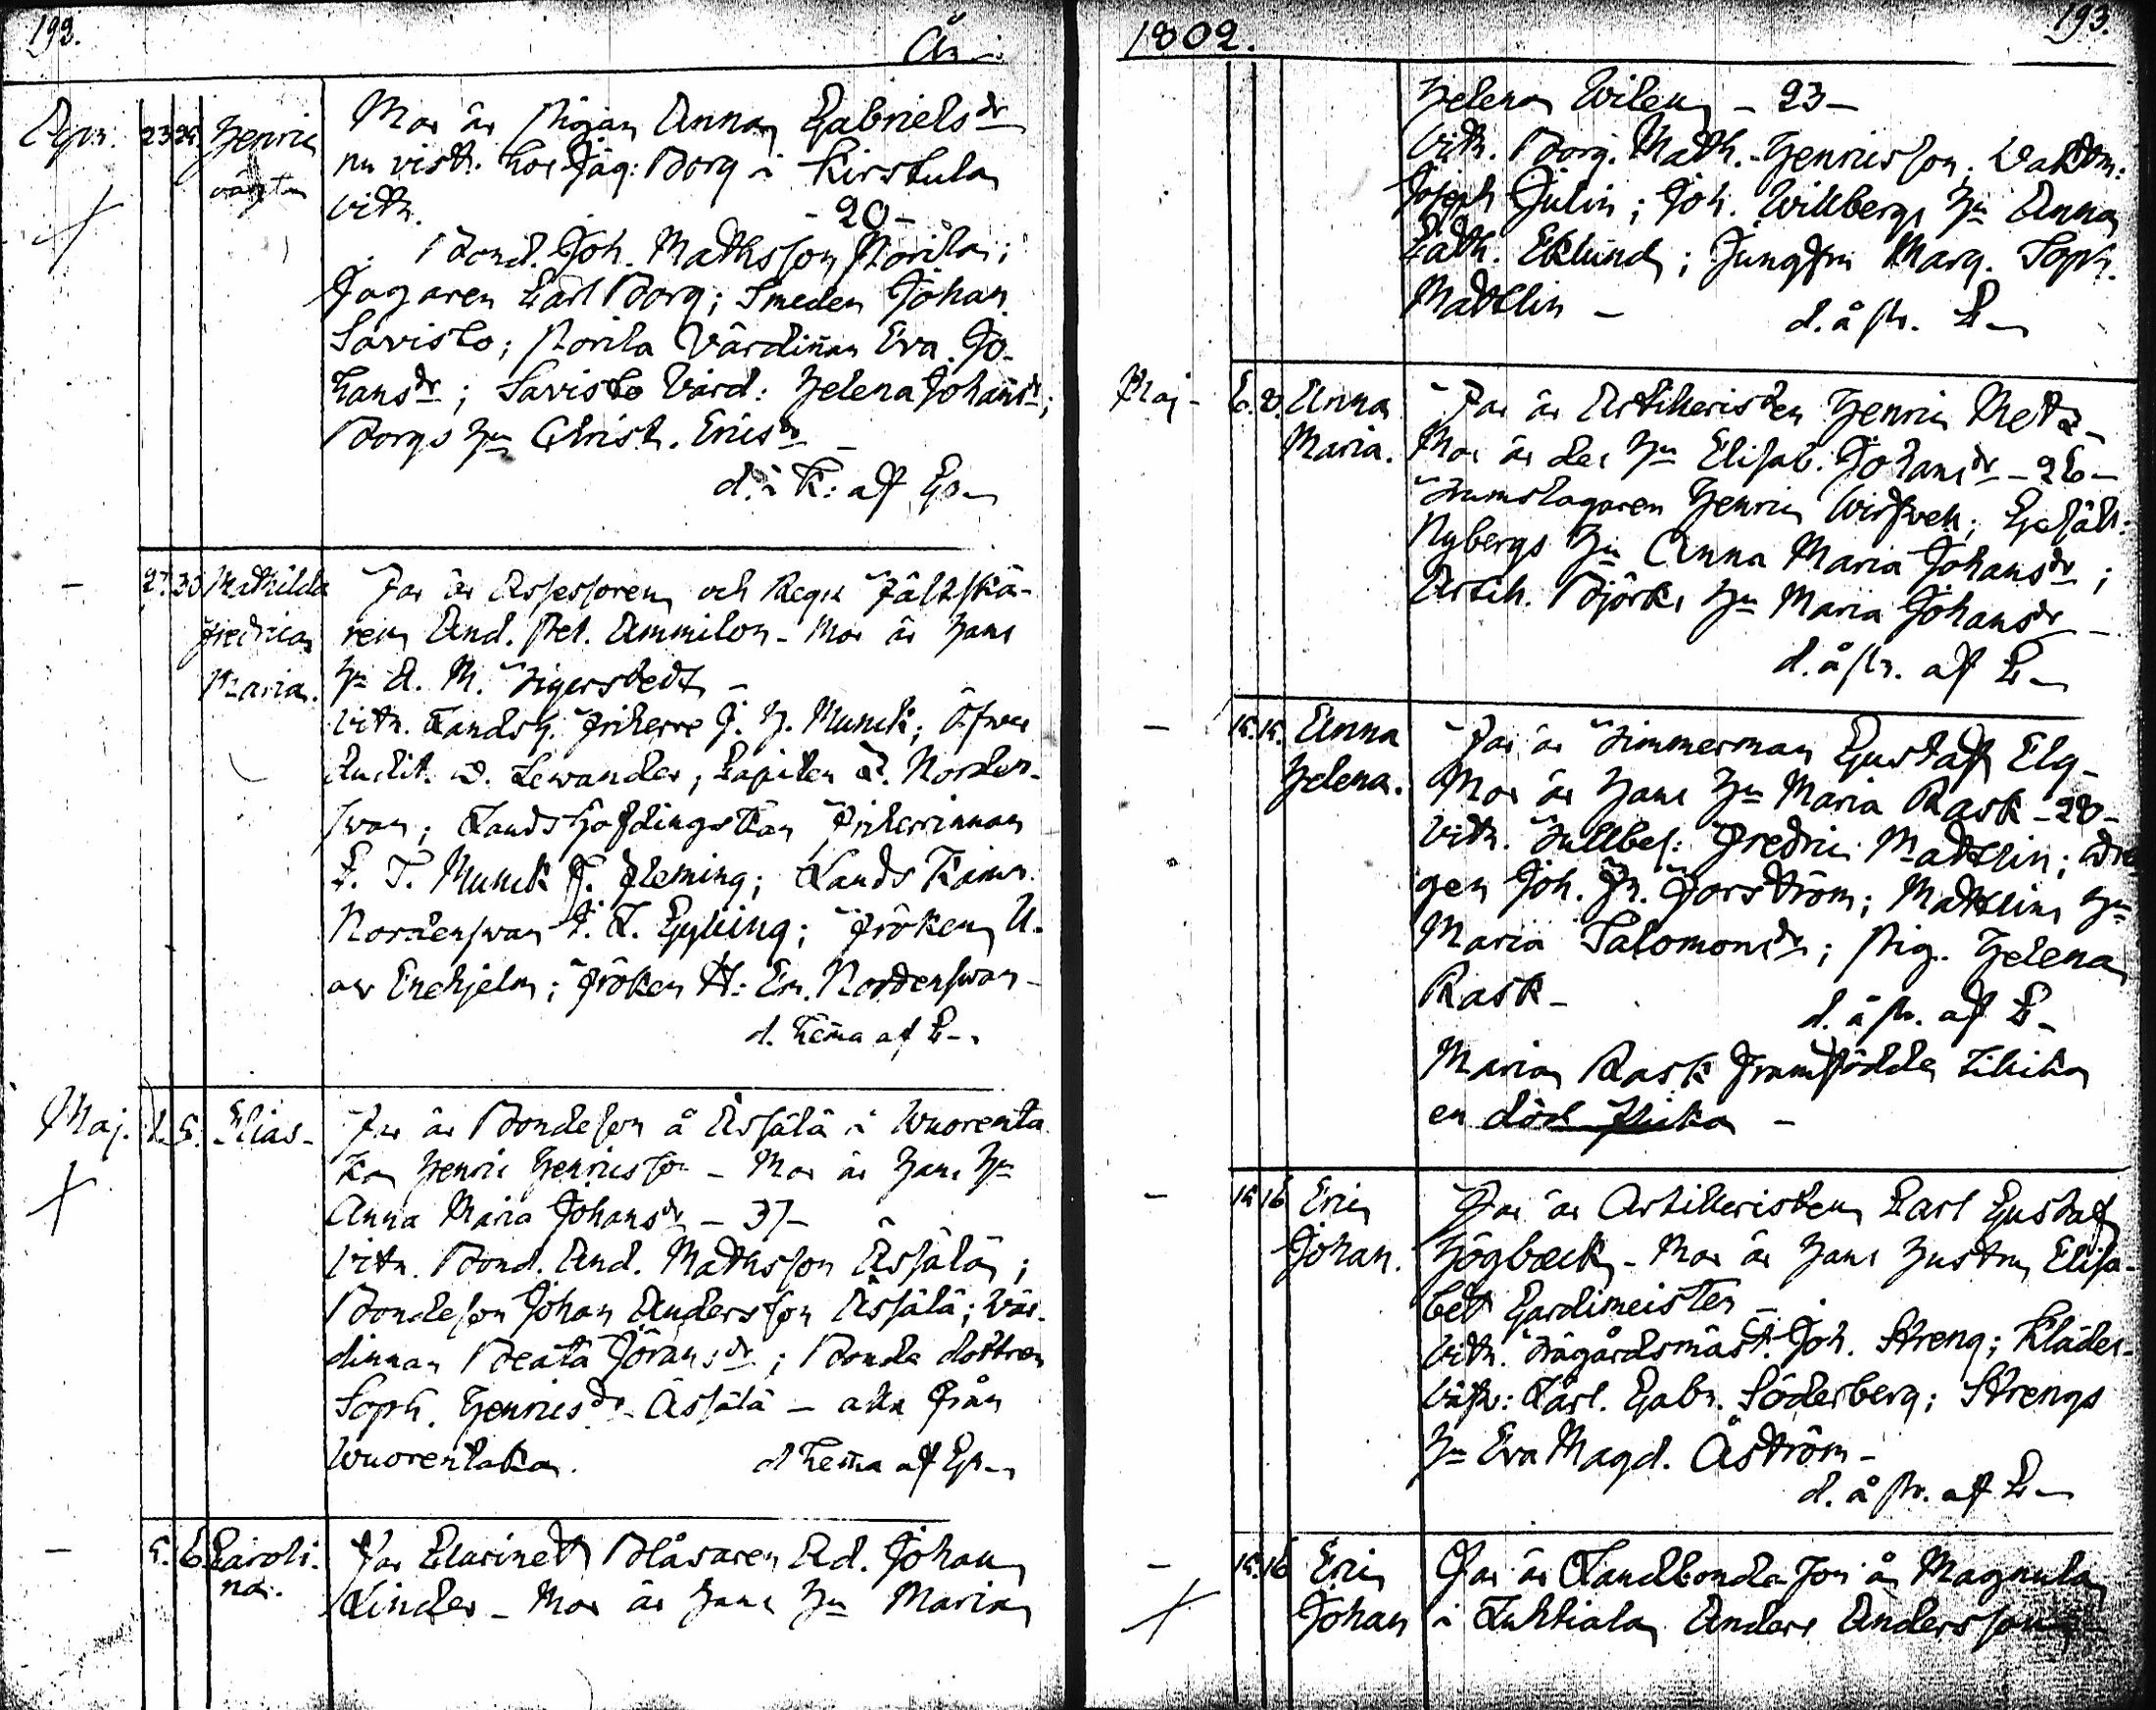 192.
År
Apr. 23 25. Henric
oägta
Mor är Pigan Anna Gabrielsdr
nu vist. hos Jäg: Borg i Kirstula
Vitn. - 20 -
Bond. Joh. Mathsson Norila;
Jagaren Carl Borg; Smeden Johan
Savisto; Norila Värdiñan Eva Jo-
hansdr; Savisto Värd: Helena Johansdr;
Borgs Hu Christ. Ericsdr -
d. i K: af
- 27. 30 Mathilda
Fredrica
Maria.
Far är Assessoren och Reg. Fältskä-
ren And. Pet. Ammilon - Mor är hans
Hu A. M. Sigerstedt -
Vitn. Landsh. Friherre J. H. Munck; Öfver
Audit. D. Lewander; Capiten C. Norden-
swan; Landshöfdingskan Friherrinnan
C. T. Munck f. Fleming; Lands Kamr.
Nordenswan f. L. Gylling; Fröken U.
av Enehjelm; Fröken H: Em. Nordenswan -
d. hema af C-
Maj. 2. 5. Elias -
Far är Bondeson å Äsjälä i Wuorenta
ka Henric Henricsson - Mor är hans Hu
Anna Maria Johansdr - 37 -
Vitn. Bond. And. Mathsson Äsjälä;
Bondeson Johan Andersson Äsjälä; Vär-
dinnan Beata Jöransdr; Bonde dottren
Soph. Henricsdr Äsjälä - alla från
Wuorentaka. d hema af
- 5. 6. Caroli-
na.
Far Clarinett Blåsaren Ad. Johan
Linder - Mor är hans Hu Maria
1802.
193.
Helena Wilen - 23 -
Vitn. Borg. Math. Henricsson; Vaktm:
Joseph Julin; Joh. Willbergs Hu Anna
Cath. Eklund; Jungfru Marg. Soph.
Mattlin - d. å st. C-
Maj - 6. 8. Anna
Maria.
Far är Artilleristen Henric Metz -
Mor är des Hu Elisab. Johansdr - 26 -
Trumslagaren Henric; Gesäll:
Nybergs Hu Anna Maria Johansdr;
Artill. Björks Hu Maria Johansdr -
d. å st. af C-
- 15. 15. Anna
Helena.
Far är Timmerman Gustaf Elg -
Mor är hans Hu Maria Rask - 28 -
Vitn. Tullbes: Fredric Mattlin; Dre
gen Joh. Fr. Forström; Mattlins Hu
Maria Salomonsdr; Pig. Helena
Rask - d. å st. af C-
Maria Rask framfödde tillika
en död flicka -
- 15 16 Eric
Johan.
Far är Artilleristen Carl Gustaf
Högbäck - Mor är hans Hustru Elisa-
bet Gardimeister -
Vitn. Trägårdsmäst. Joh. Streng; Kläde-
väfv: Carl. Gabr. Söderberg; Strengs
Hu Eva Magd. Åström -
d. å st. af C-
- 15. 16 Eric
Johan
Far är Landbonda Son å Magnula
i Luhtiala Anders Andersson